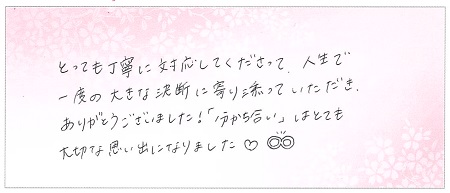 とっても丁寧に対応してくださって、人生で
一度の大きな決断に寄り添っていただき、
ありがとうございました！「分かち合い」はとても
大切な思い出になりました♡